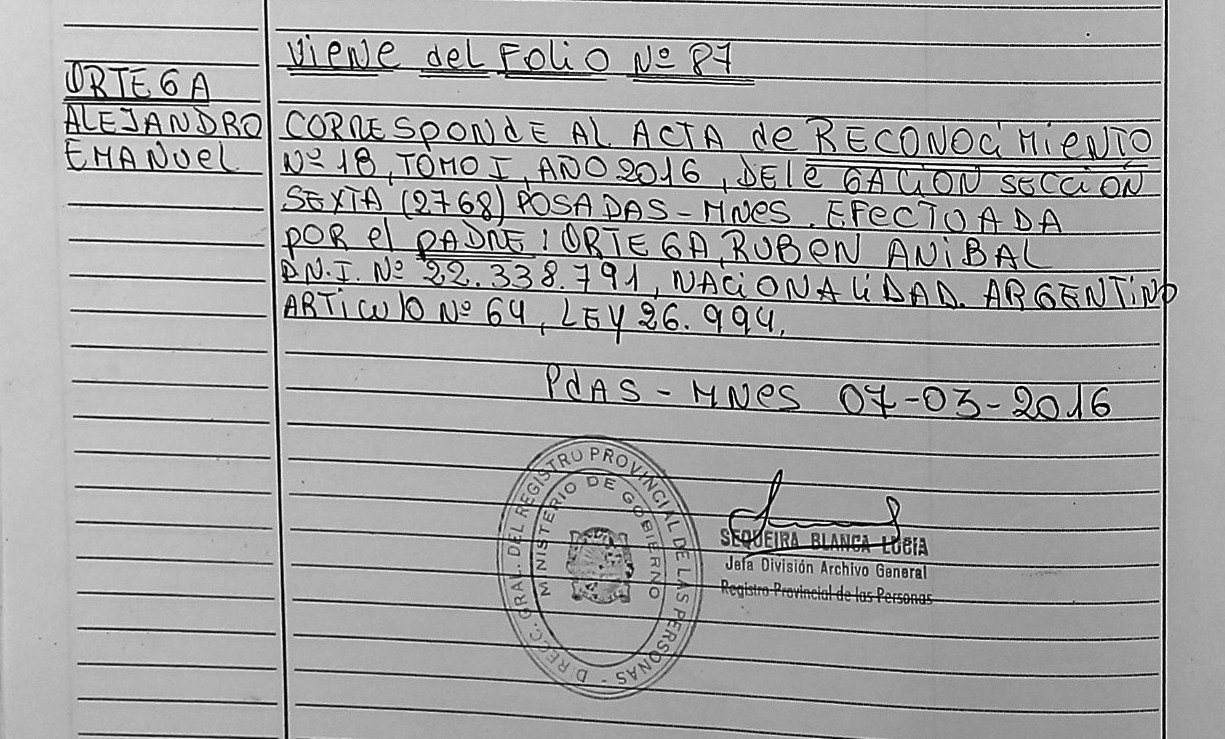 Viene del Folio Nº 87
ORTEGA
ALEJANDRO
EMANUEL
CORRESPONDE AL ACTA de RECONOCIMIENTO
Nº 18, TOMO I, AÑO 2016, DELEGACION SECCION
SEXTA (2768) POSADAS - MNES. EFECTUADA
POR el PADRE: ORTEGA, RUBEN ANIBAL
D.N.I. Nº 22.338.791, NACIONALIDAD. ARGENTINO
ARTICULO Nº 64, LEY 26.994.
PdAS - MNES 07-03-2016
DIRECC. GRAL. DEL REGISTRO PROVINCIAL DE LAS PERSONAS -
MINISTERIO DE GOBIERNO
SEQUEIRA BLANCA LUCIA
Jefa División Archivo General
Registro Provincial de las Personas